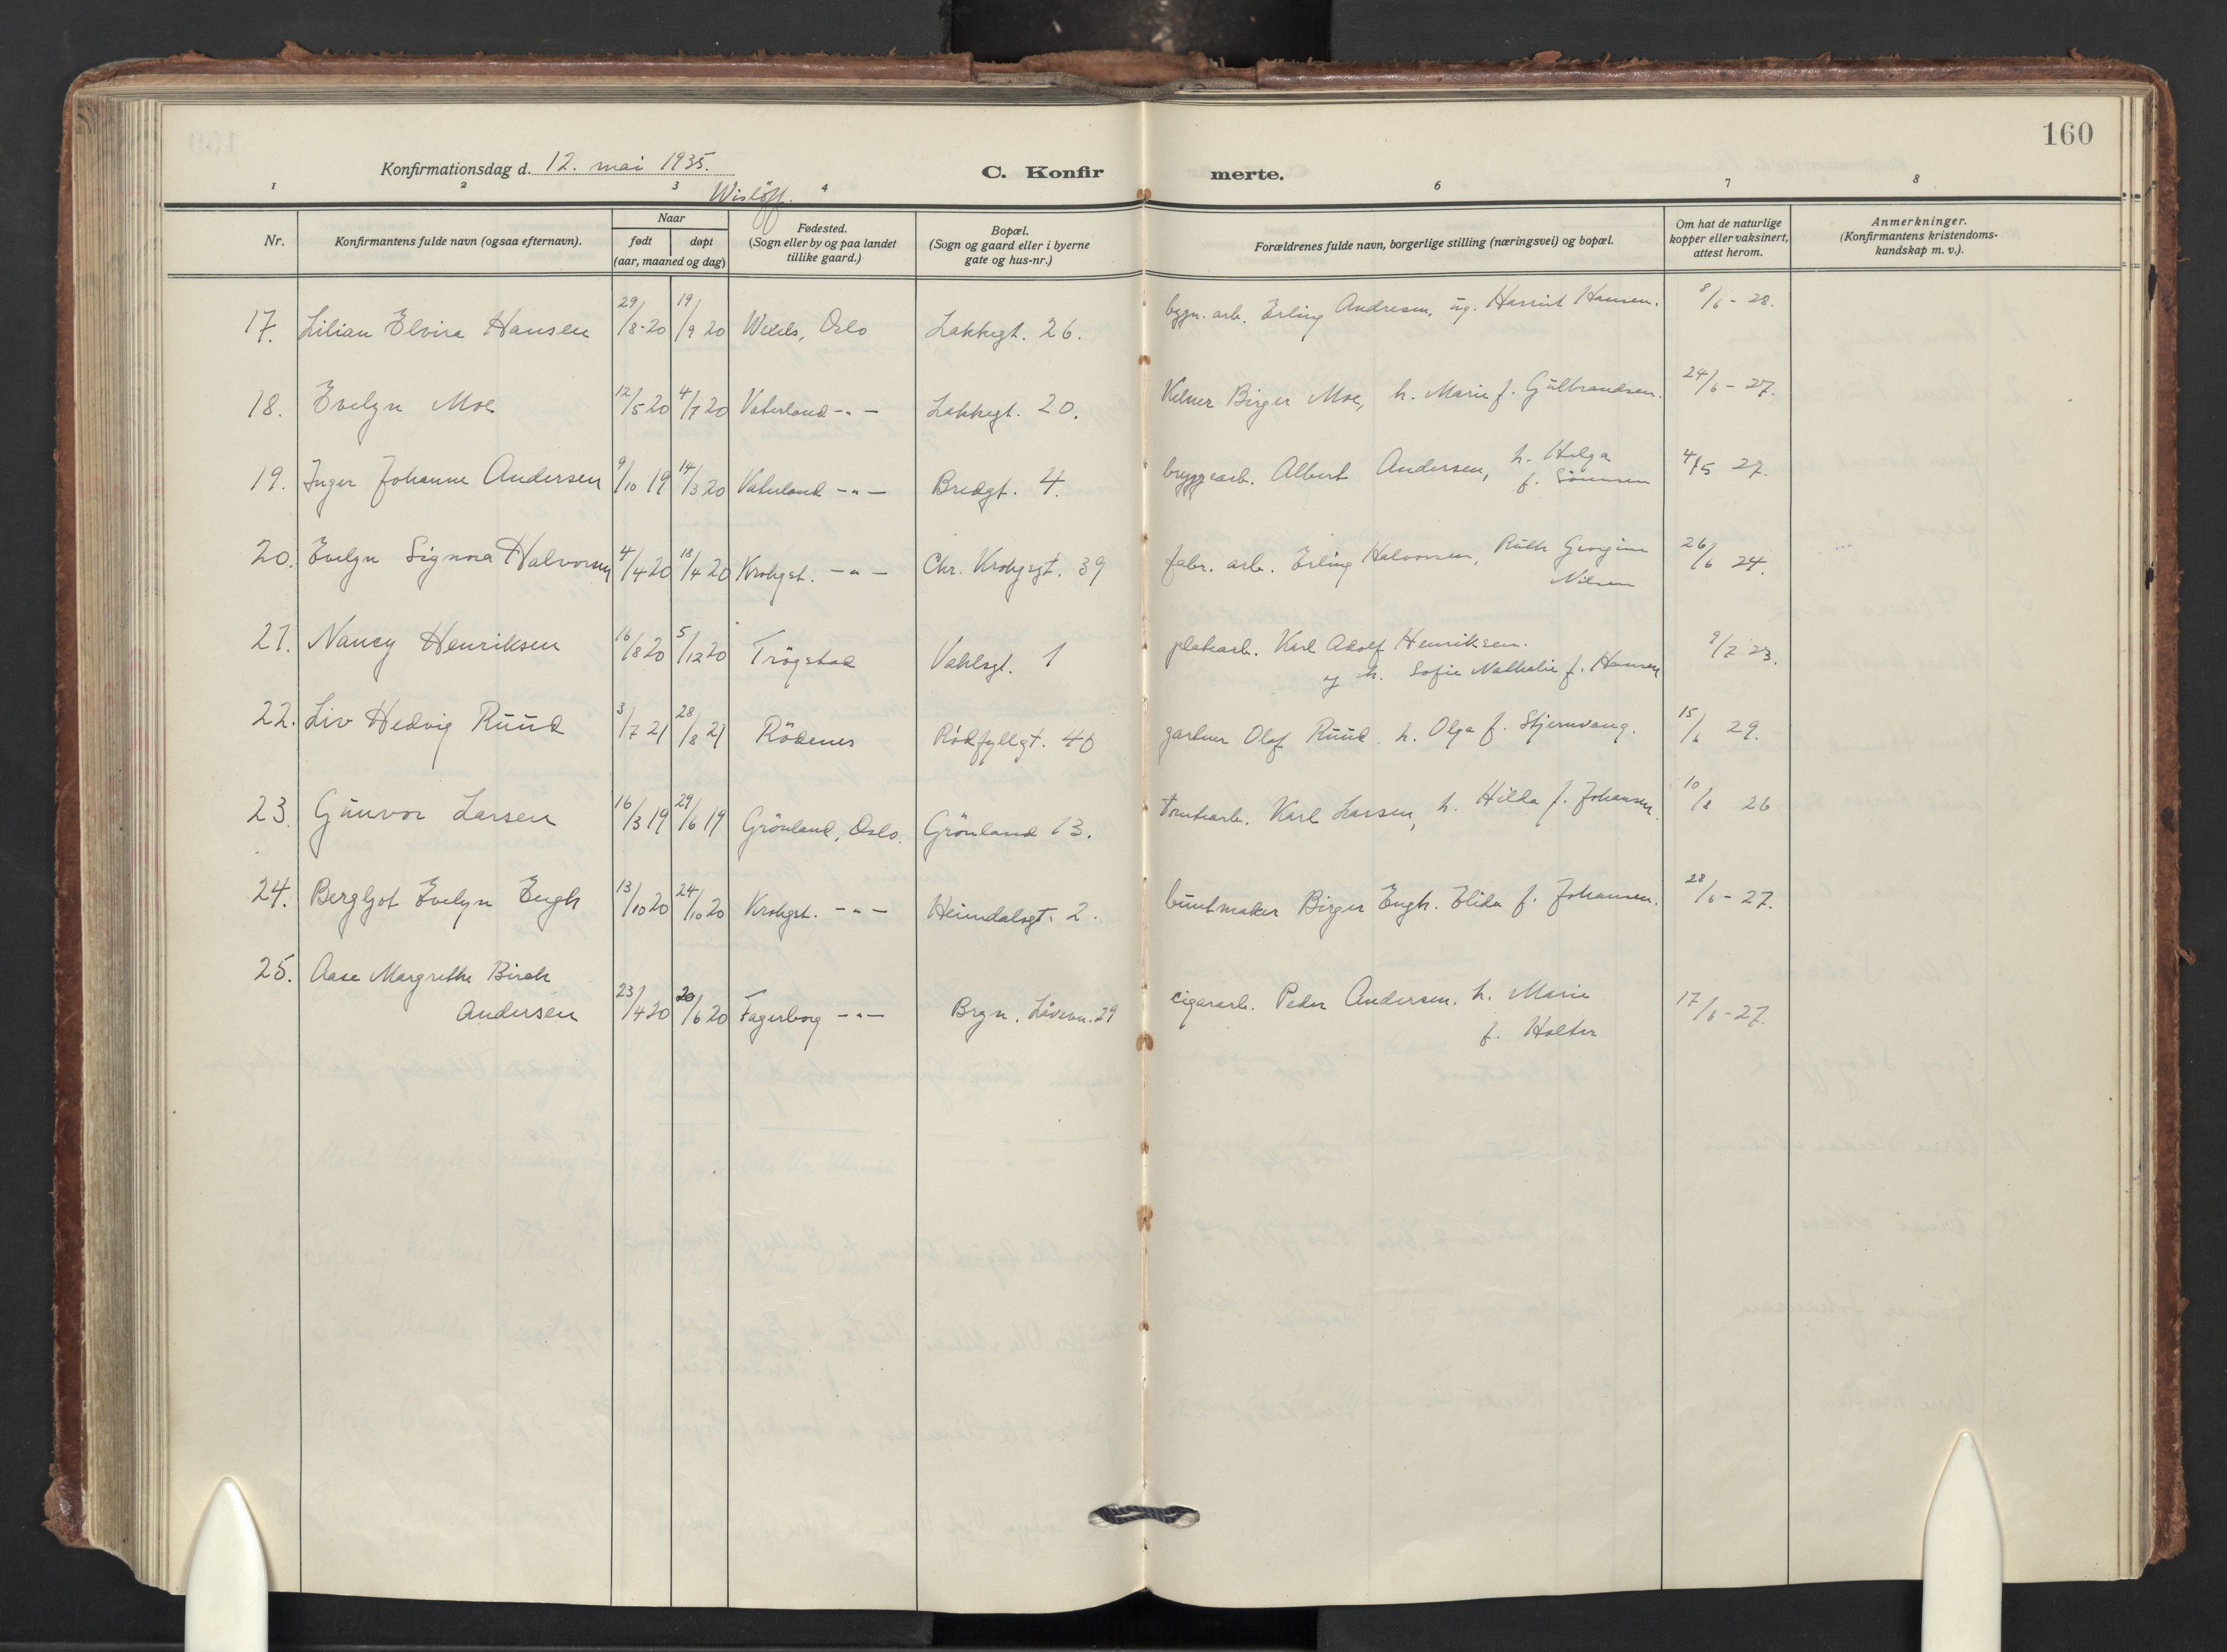 160
Konfirmationsdag d. 12. mai 1935.
C. Konfir merte.
1 2 3 4 6 7 8
Wislöff.
Nr.
Konfirmantens fulde navn (ogsaa efternavn).
Naar
født døpt
(aar, maaned og dag)
Fødested.
(Sogn eller by og paa landet
tillike gaard.)
Bopæl.
(Sogn og gaard eller i byerne
gate og hus-nr.)
Forældrenes fulde navn, borgerlige stilling (næringsvei) og bopæl.
Om hat de naturlige
kopper eller vaksinert,
attest herom.
Anmerkninger.
(Konfirmantens kristendoms-
kundskap m. v.).
17. Lilian Elvira Hansen 29/8-20 19/9 20 Oslo Lakkegt. 26. bygn. arb. Erling Andresen, ug. Harriet Hansen. 8/6 - 28.
18. Evelyn Moe 12/5 20 4/7 20 Vaterland -"- Lakkegt. 20. Kelner Birger Moe, h. Marie f. Gulbrandsen. 24/6 - 27.
19. Inger Johanne Andersen 9/10 19 14/3 20 Vaterland -"- Bredgt. 4. bryggearb. Albert Andersen, h. Helga
f. Sörensen 4/5 27.
20. Evelyn Signora Halvorsen 4/4 20 18/4 20 Krohgst. -"- Chr. Krohgsgt. 39 fabr. arb. Erling Halvorsen, Ruth Georgine
Nilsen 26/6 24.
21. Nancy Henriksen 16/8 20 5/12 20 Trögstad Vahlsgt. 1 platearb. Karl Adolf Henriksen.
og h. Sofie Nathalie f. Hansen 9/7 23.
22. Liv Hedvig Ruud 3/7 21 28/8 21 Rödenes Rödfyllgt. 40 gartner Olaf Ruud. h. Olga f. Stjernvang. 15/6 29.
23. Gunvor Larsen 16/3 19 29/6 19 Grönland, Oslo. Grönland 13. tomtearb. Karl Larsen, h. Hilda f. Johansen. 10/8 26
24. Bergljot Evelyn Engh 13/10 20 24/10 20 Krohgst. -"- Heimdalsgt. 2. buntmaker Birger Engh. Elida f. Johansen. 28/6 - 27.
25. Aase Margrethe Birch
Andersen 23/4 20 20/6 20 Fagerborg -"- Brgn. 29 cigararb. Peder Andersen. h. Marie
f. Holter 17/6 - 27.